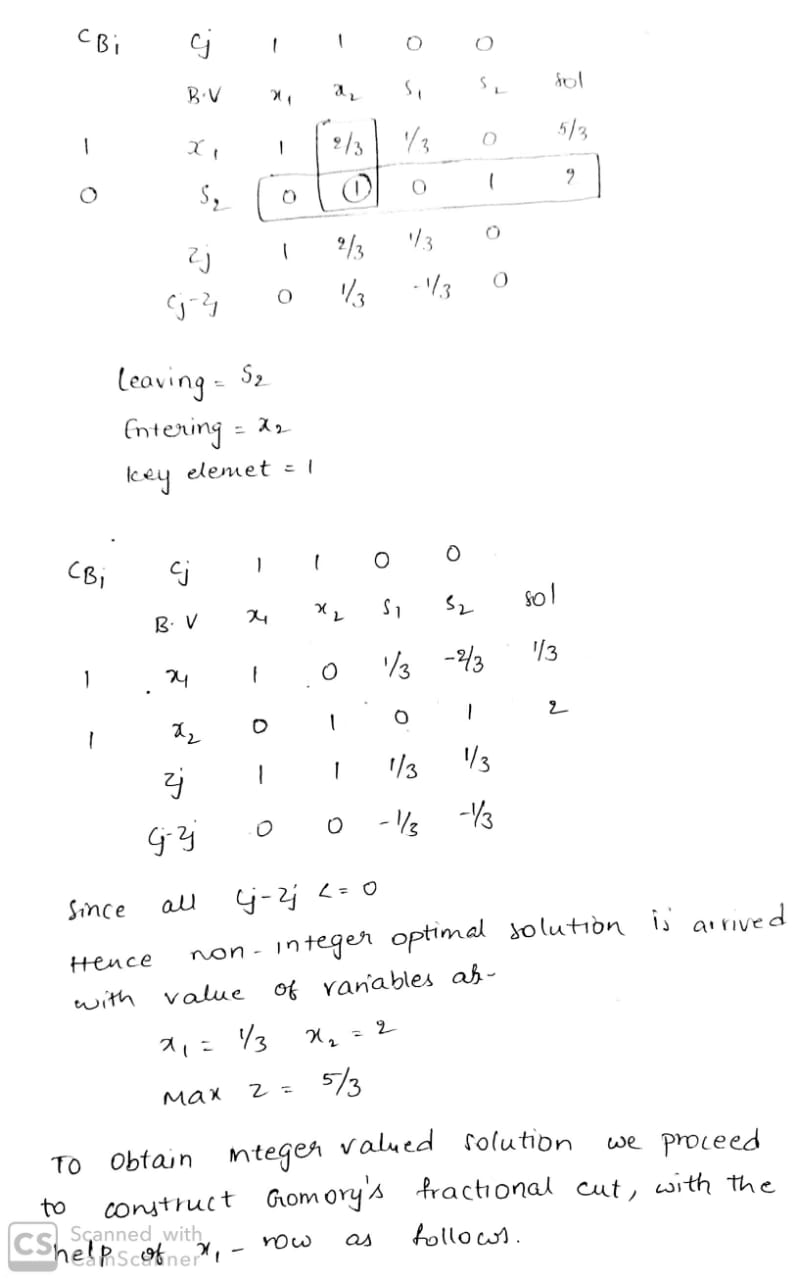 CBi Cj 1 1 0 0
B.V x1 x2 S1 S2 sol
1 x1 1 2/3 1/3 0 5/3
0 S2 0 1 0 1 2
Zj 1 2/3 1/3 0
Cj-Zj 0 1/3 -1/3 0
Leaving = S2
Entering = x2
key elemet = 1
CBi Cj 1 1 0 0
B.V x1 x2 S1 S2 sol
1 x1 1 0 1/3 -2/3 1/3
1 x2 0 1 0 1 2
Zj 1 1 1/3 1/3
Cj-Zj 0 0 -1/3 -1/3
Since all Cj-Zj <= 0
Hence non-integer optimal solution is arrived
with value of variables as-
x1 = 1/3 x2 = 2
Max Z = 5/3
To Obtain integer valued solution we proceed
to construct Gomory's fractional cut, with the
help of x1 - row as follows.
CS Scanned with
CamScanner